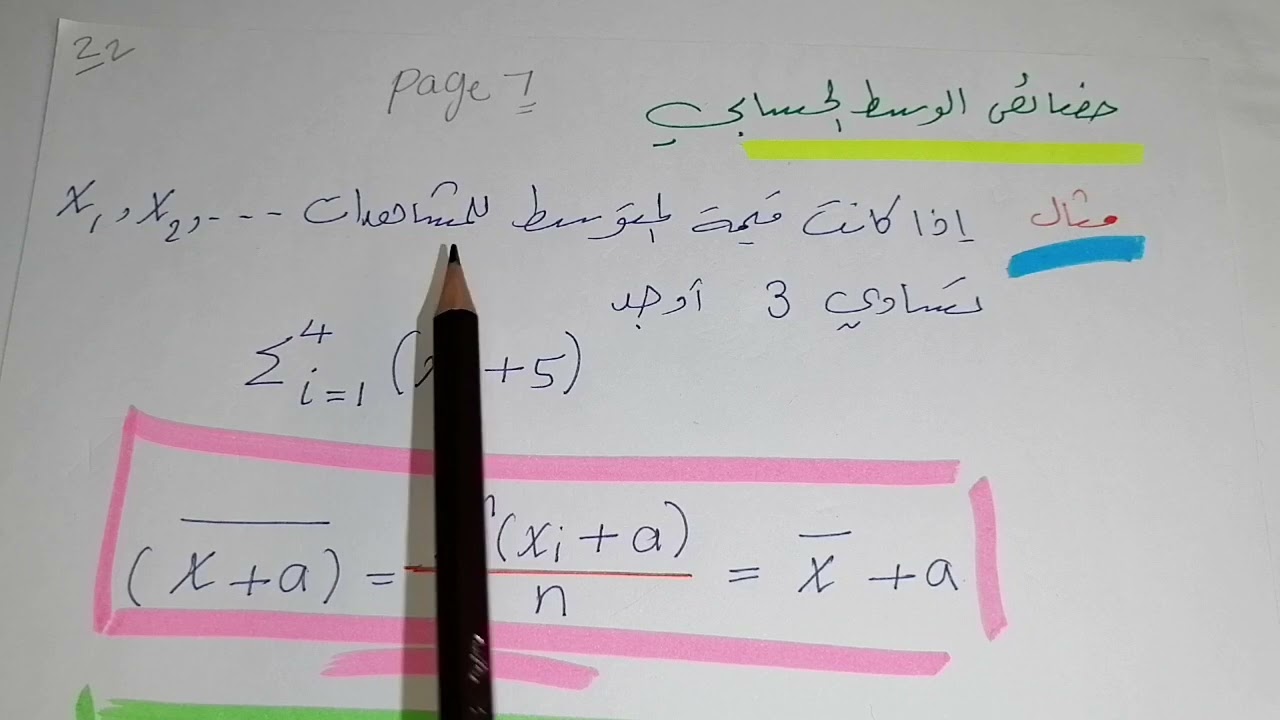 22
page 7
خصائص الوسط الحسابي
مثال إذا كانت قيمة المتوسط للمشاهدات X₁, X₂, ---
تساوي 3 أوجد
Σ⁴ᵢ₌₁ (x +5)
(X+a)‾ = ⁿ(xᵢ+a)/n = x̄ +a